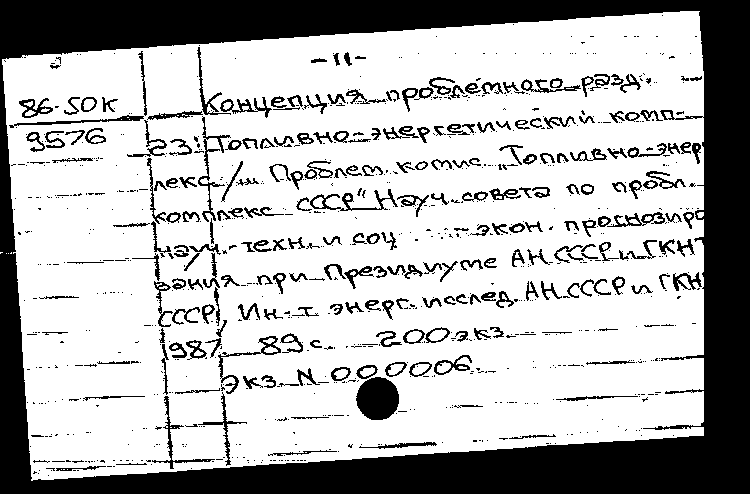 -11-
86-50К Концепция проблемного разд.
9576 23: Топливно-энергетический комп-
лекс / ... Проблем. комис. „Топливно-энер
комплекс СССР" Науч. совета по пробл.
науч.-техн. и соц ... экон. прогнозиро
вания при Президиуме АН СССР и ГКНТ
СССР, Ин-т энерг. исслед. АН СССР и ГКНТ
1987. 89 с. 200 экз.
Экз. N 000006.